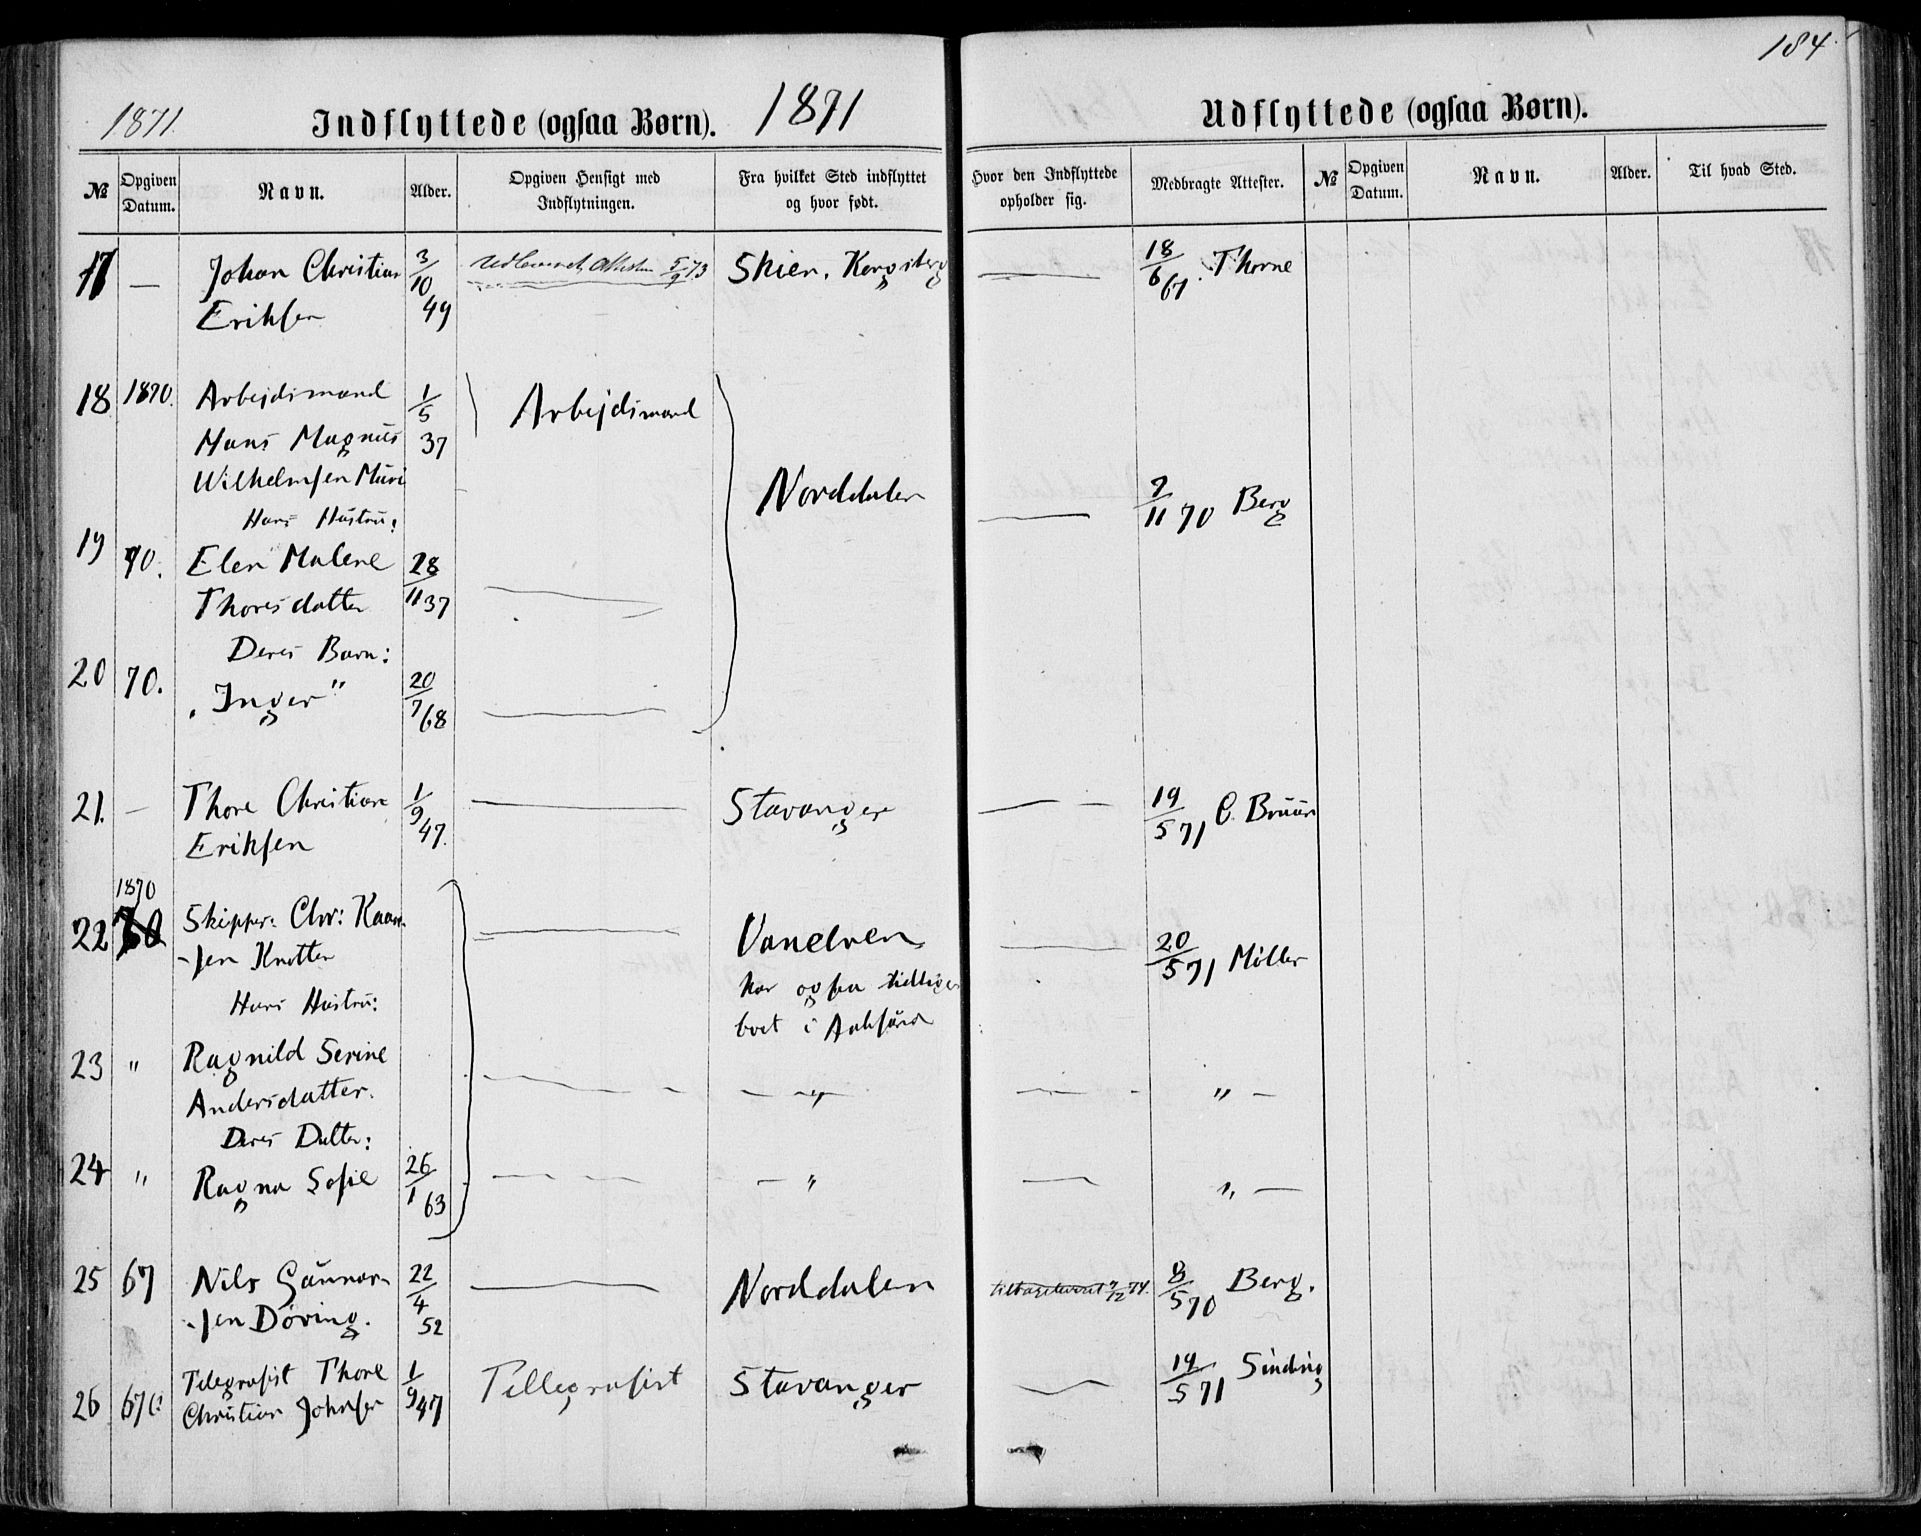 184
1871.
Indflyttede (ogsaa Børn).
1871
Udflyttede (ogsaa Børn).
№
Opgiven Datum.
Navn.
Alder.
Opgiven Hensigt med Indflytningen.
Fra hvilket Sted indflyttet og hvor født.
Hvor den Indflyttede opholder sig.
Medbragte Attester.
№
Opgiven Datum.
Navn.
Alder.
Til hvad Sted.
17 — Johan Christian 3/10 5/9 73 Skien, Kongsberg — 18/6 67. Thorne
Eriksen 49
18 1870. Arbejdsmand 1/5 Arbejdsmand
Hans Magnus 37
Wilhelmsen Muri Norddalen — 9/11 70 Berg
Hans Hustru:
19 70. Elen Malene 28/11 37 —
Thoresdatter
Deres Barn:
20 70. "Inger" 20/7 68 —
21. — Thore Christian 1/9 47. — Stavanger — 19/5 71 C. Bruun
Eriksen
1870
22 Skipper Chr: Kaar- — Vanelven — 20/5 71 Möller
sen Knotten har ogsaa tidliger
Hans Hustru: boet i
23 " Ragnild Serine — — " — — " —
Andersdatter.
Deres Datter:
24 " Ragna Sofie 26/1 63 — — " — " —
25 67 Nils Gunnar- 22/4 52 — Norddalen tilbageleveret 2/12 74. 8/5 70 Berg.
sen Döving.
26 Telegrafist Thore 1/9 47 Tellegrafist Stavanger — 19/5 71 Sinding
Christian Johnsen